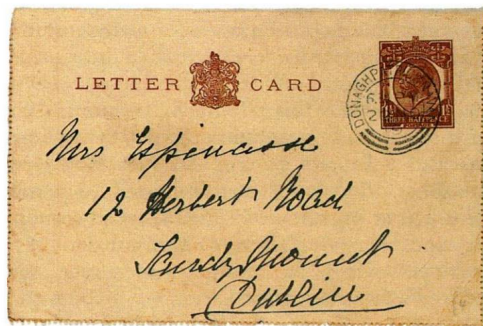 LETTER CARD
THREE HALFPENCE
DONAGH
Mrs Espinasse
12 Herbert Road
Sandymount
Dublin